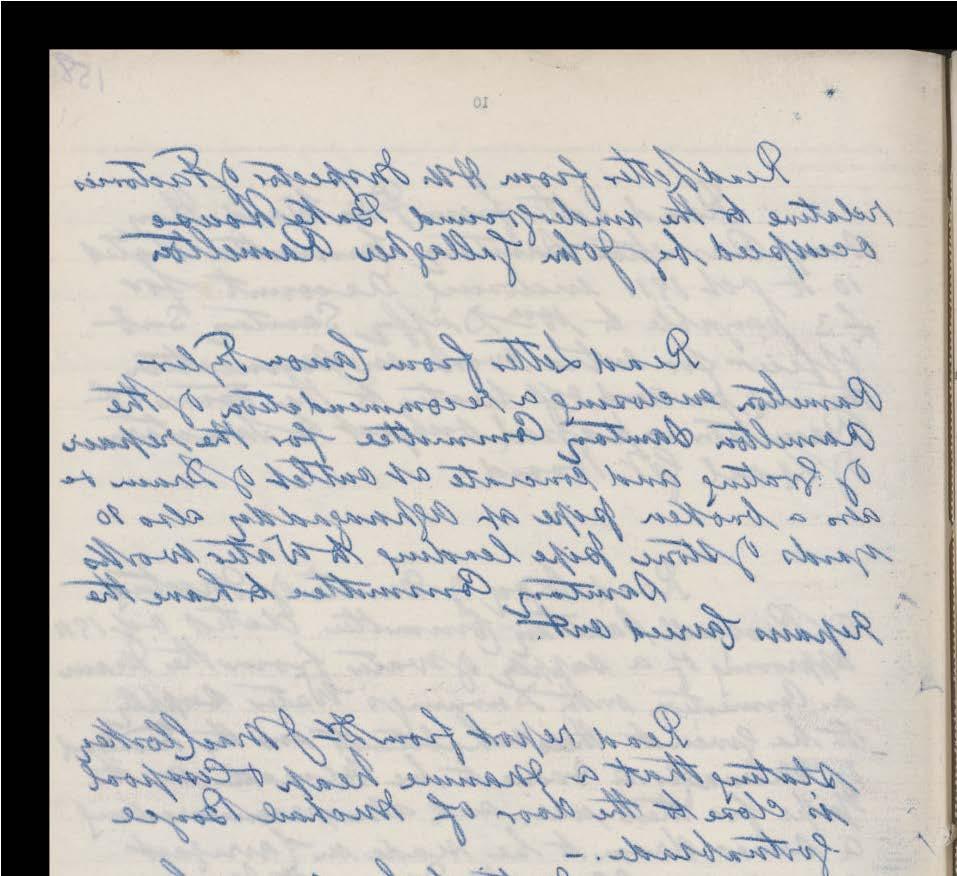 158
10
Read Letter from H.M. Inspector of Factories
relative to the underground Bake House
occupied by John Gallagher Ramelton
Read Letter from Canon Tyler
Ramelton enclosing a recommendation of the
Ramelton Sanitary Committee for the repair
of Grating and Concrete at outlet of Drain &c
also a broken pipe at Aghnagaddy also 20
yards of stone pipe leading to Water Works
Sanitary Committee to have the
repairs Carried out.
Read report from Dr J MacCloskey
stating that a Manure heap & Cesspool
is close to the door of Michael Boyce
Gortnabrade. -